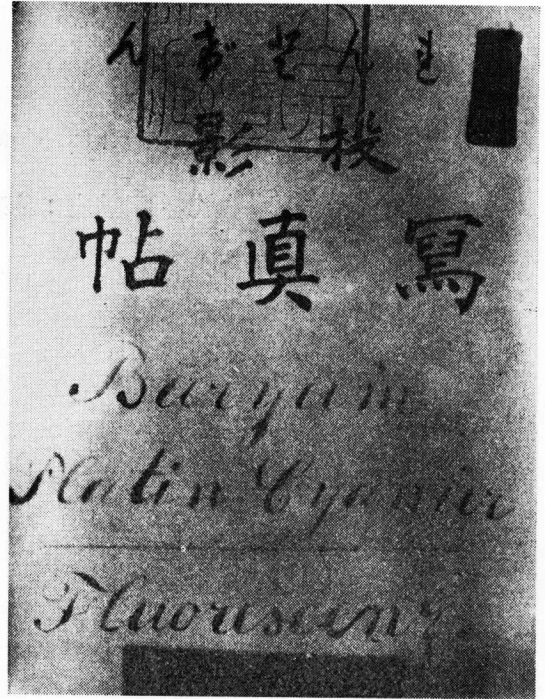 投影
寫真帖
Baryum
Platin Cyanür
Fluorescenz